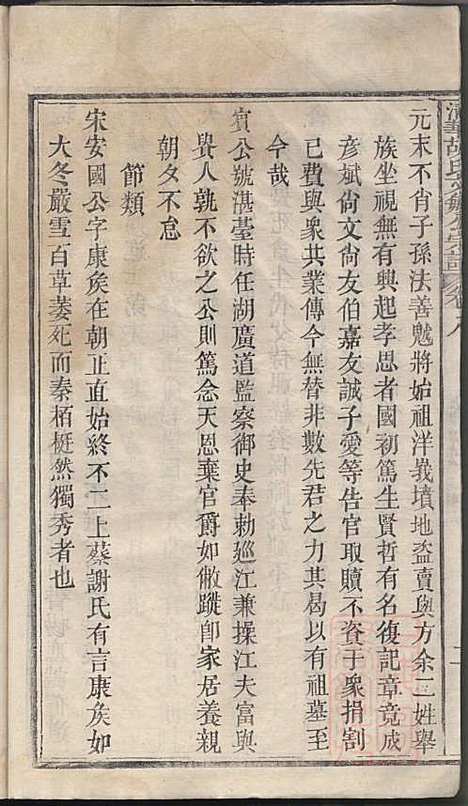 清華胡氏勳賢公宗譜 卷之八
元末不肖子孫法善魁將始祖洋義墳地盜賣與方余二姓舉
族坐視無有興起孝思者國初篤生賢哲有名復記章竟成
彥斌尚文尚友伯嘉友誠子愛等告官取贖不資于衆捐割
已費與衆共業傳今無替非數先君之力其曷以有祖墓至
今哉
賓公號湛臺時任湖廣道監察御史奉勅廵江兼操江夫富與
貴人孰不欲之公則篤念天恩棄官爵如敝蹝卽家居養親
朝夕不怠
節類
宋安國公字康矦在朝正直始終不二上蔡謝氏有言康矦如
大冬嚴雪百草萎死而秦栢梃然獨秀者也